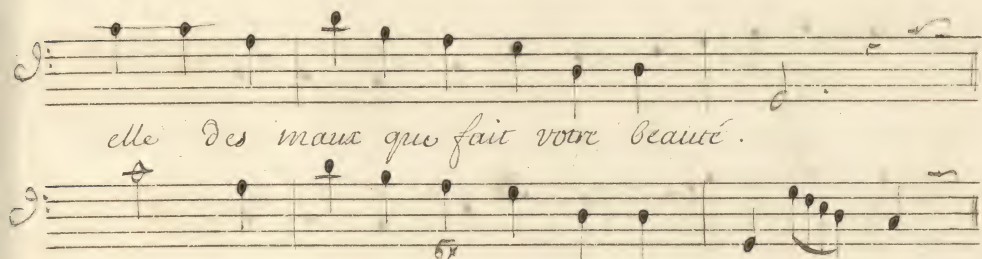 elle des maux que fait votre beauté.
6x